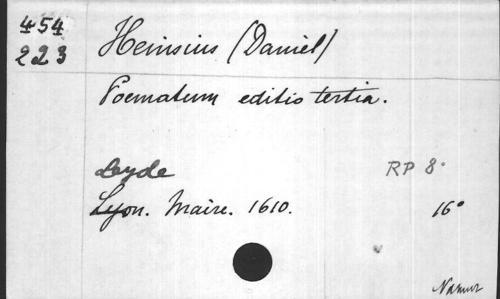 454
223
Heinsius (Daniel)
Poematum editio tertia.
Leyde
RP 8°
Lyon. Maire. 1610.
16°
Namur